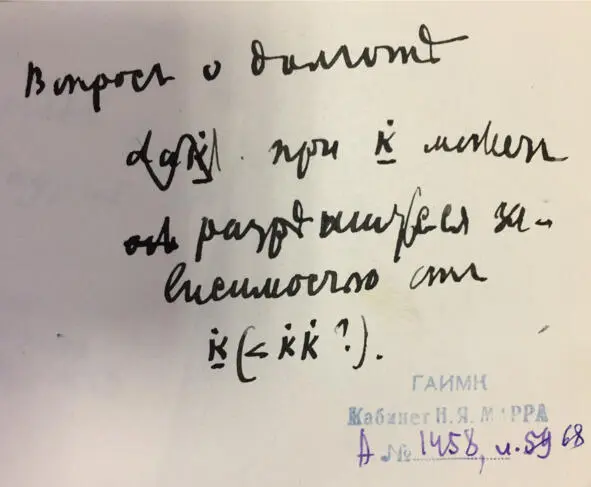 Вопросъ о долготѣ
при k̭̇ можетъ
разрѣшиться за-
висимостью отъ
k̭̇ (< k̇k̇ ?).
ГАИМК
Кабинет Н.Я. МАРРА
А № 1458, л. 59 68